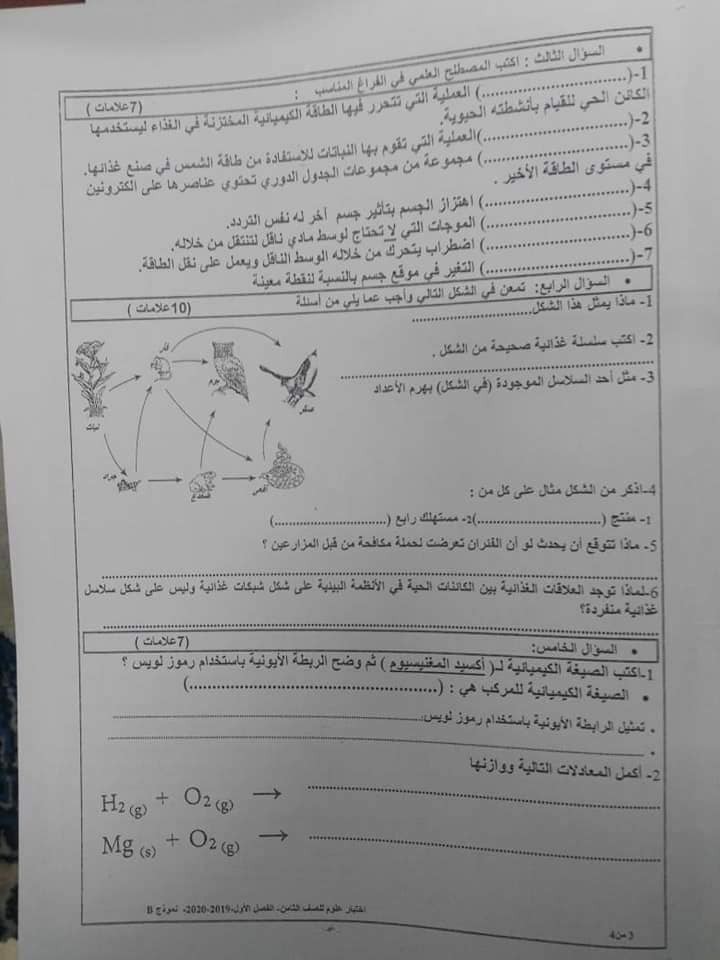 السؤال الثالث : اكتب المصطلح العلمي في الفراغ المناسب :
(7علامات )
1-(..............................) العملية التي تتحرر فيها الطاقة الكيميائية المختزنة في الغذاء ليستخدمها
الكائن الحي للقيام بأنشطته الحيوية.
2-(..............................)العملية التي تقوم بها النباتات للاستفادة من طاقة الشمس في صنع غذائها.
3-(..............................) مجموعة من مجموعات الجدول الدوري تحتوي عناصرها على الكترونين
في مستوى الطاقة الأخير .
4-(..............................) اهتزاز الجسم بتأثير جسم آخر له نفس التردد.
5-(..............................) الموجات التي لا تحتاج لوسط مادي ناقل لتنتقل من خلاله.
6-(..............................) اضطراب يتحرك من خلاله الوسط الناقل ويعمل على نقل الطاقة.
7-(..............................) التغير في موقع جسم بالنسبة لنقطة معينة
السؤال الرابع: تمعن في الشكل التالي وأجب عما يلي من أسئلة
(10علامات )
1- ماذا يمثل هذا الشكل..............................
2- اكتب سلسلة غذائية صحيحة من الشكل .
..............................................................
3- مثل أحد السلاسل الموجودة (في الشكل) بهرم الأعداد
نبات
فأر
بوم
صقر
جراد
الضفدع
أفعى
4-اذكر من الشكل مثال على كل من :
1- منتج (..............................)2- مستهلك رابع (...........................)
5- ماذا تتوقع أن يحدث لو أن الفئران تعرضت لحملة مكافحة من قبل المزارعين ؟
..............................................................
6-لماذا توجد العلاقات الغذائية بين الكائنات الحية في الأنظمة البيئية على شكل شبكات غذائية وليس على شكل سلاسل
غذائية منفردة؟
..............................................................
السؤال الخامس:
(7علامات )
1-اكتب الصيغة الكيميائية لـ( أكسيد المغنيسيوم ) ثم وضح الربطة الأيونية باستخدام رموز لويس ؟
الصيغة الكيميائية للمركب هي : (..........................................)
تمثيل الرابطة الأيونية باستخدام رموز لويس:..............................................................
..............................................................
2- أكمل المعادلات التالية ووازنها
H2 (g) + O2 (g) → ..............................................................
Mg (s) + O2 (g) → ..............................................................
اختبار علوم للصف الثامن- الفصل الأول-2019-2020- نموذج B
3 من 4